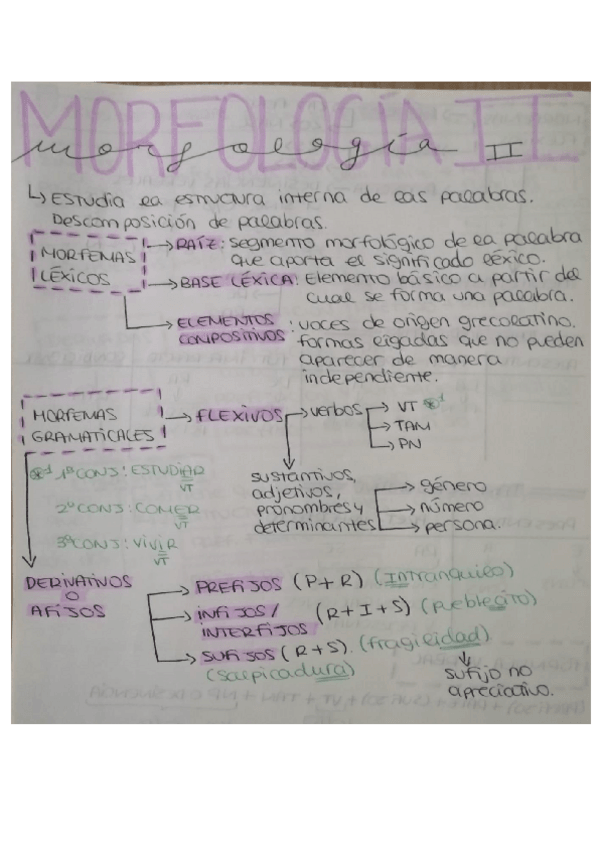 MORFOLOGÍA II
morfología II
↳ Estudia la estructura interna de las palabras.
Descomposición de palabras.
MORFEMAS LÉXICOS
→ RAÍZ: segmento morfológico de la palabra
que aporta el significado léxico.
→ BASE LÉXICA: Elemento básico a partir del
cual se forma una palabra.
→ ELEMENTOS COMPOSITIVOS: voces de origen grecolatino,
formas ligadas que no pueden
aparecer de manera
independiente.
MORFEMAS GRAMATICALES
→ FLEXIVOS
→ verbos
→ VT ⊛1
→ TAM
→ PN
sustantivos,
adjetivos,
pronombres y
determinantes
→ género
→ número
→ persona.
⊛1 1ª CONJ: ESTUDIAR
VT
2ª CONJ: COMER
VT
3ª CONJ: VIVIR
VT
DERIVATIVOS
O
AFIJOS
→ PREFIJOS (P+R) (Intranquilo)
→ INFIJOS / INTERFIJOS (R+I+S) (pueblecito)
→ SUFIJOS (R+S). (fragilidad)
(salpicadura)
sufijo no
apreciativo.